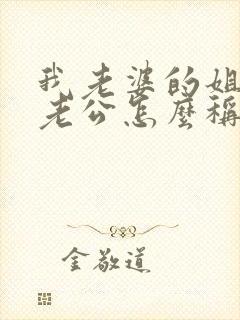 我老婆的姐
老公怎麼稱
金敬道